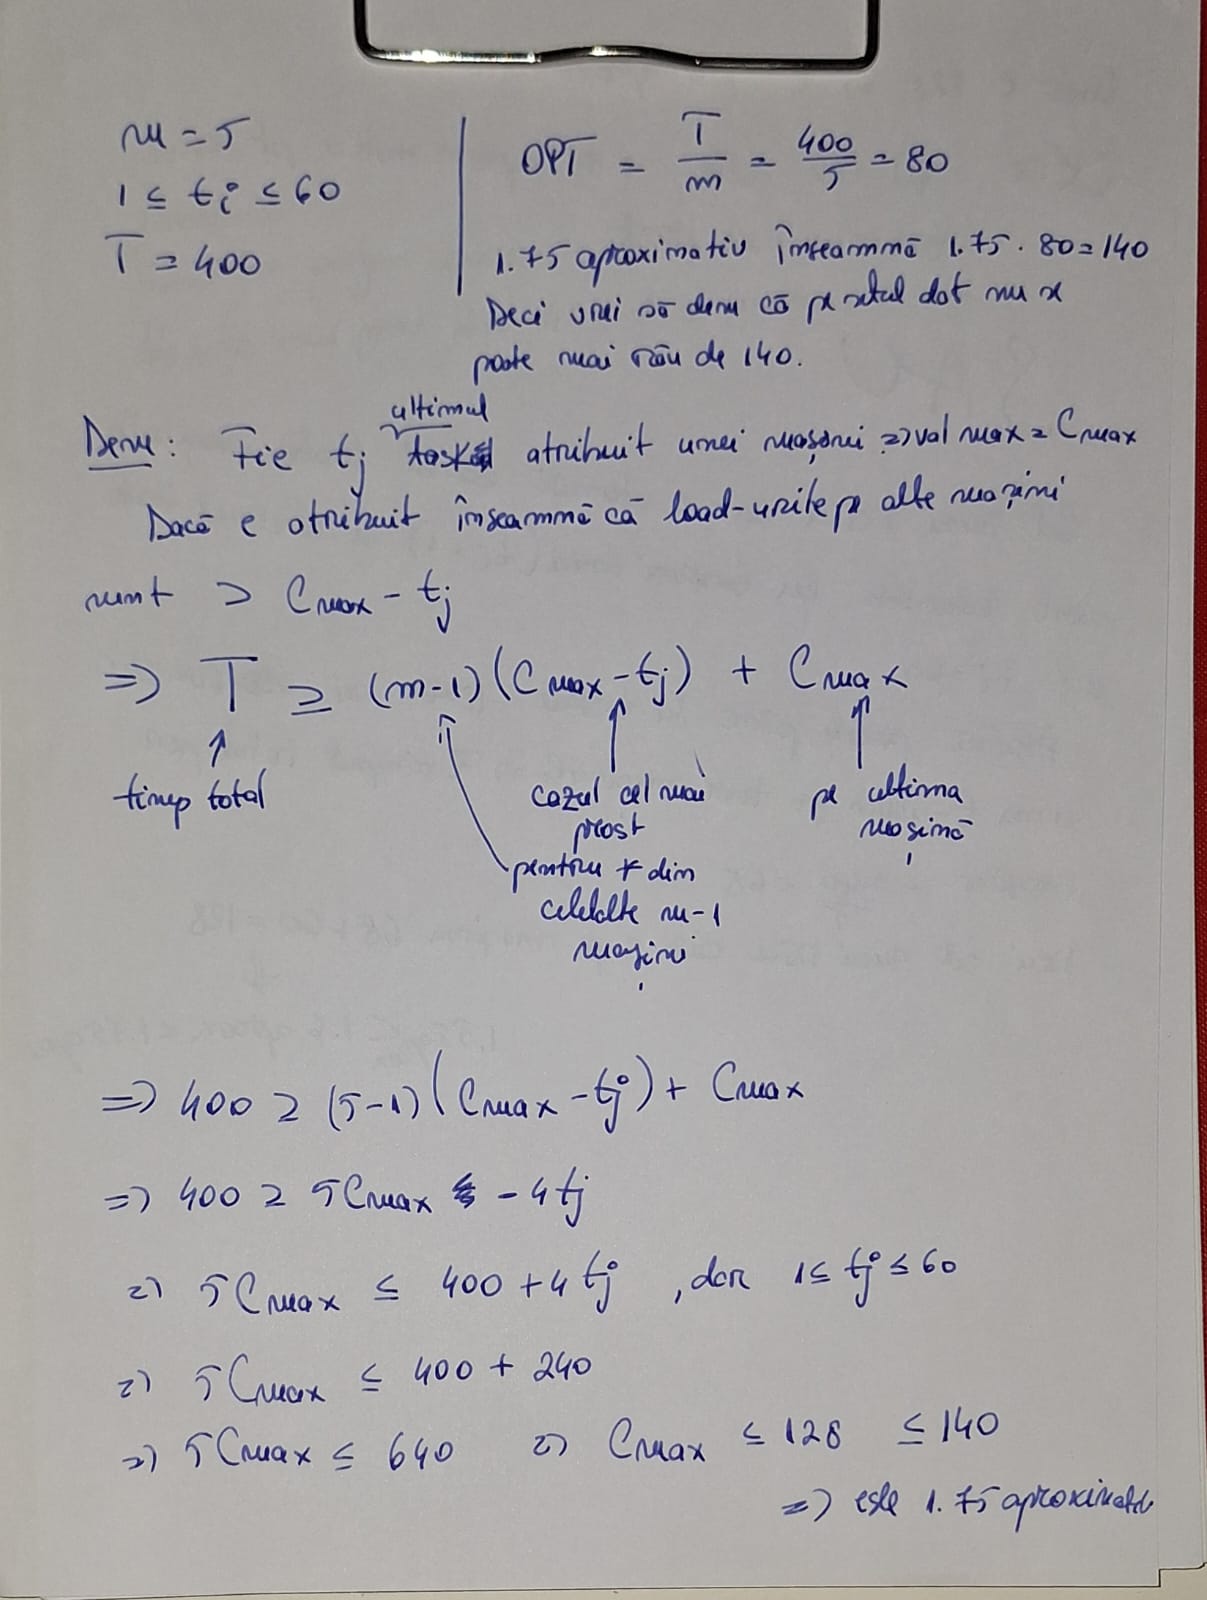 m = 5
1 ≤ ti ≤ 60
T = 400
OPT = T/m = 400/5 = 80
1.75 aproximativ înseamnă 1.75 · 80 = 140
Deci vrei să dem că pe setul dat nu se
poate mai rău de 140.
ultimul
Dem: Fie tj task atribuit unei mașini => val max = Cmax
Dacă e atribuit înseamnă că load-urile pe alte mașini
sunt > Cmax - tj
=> T ≥ (m-1)(Cmax - tj) + Cmax
timp total
cazul cel mai
prost
pe ultima
mașină
pentru * din
celelalte m-1
mașini
=> 400 ≥ (5-1)(Cmax - tj) + Cmax
=> 400 ≥ 5Cmax - 4tj
=> 5Cmax ≤ 400 + 4tj , dar 1 ≤ tj ≤ 60
=> 5Cmax ≤ 400 + 240
=> 5Cmax ≤ 640 => Cmax ≤ 128 ≤ 140
=> este 1.75 aproximativ